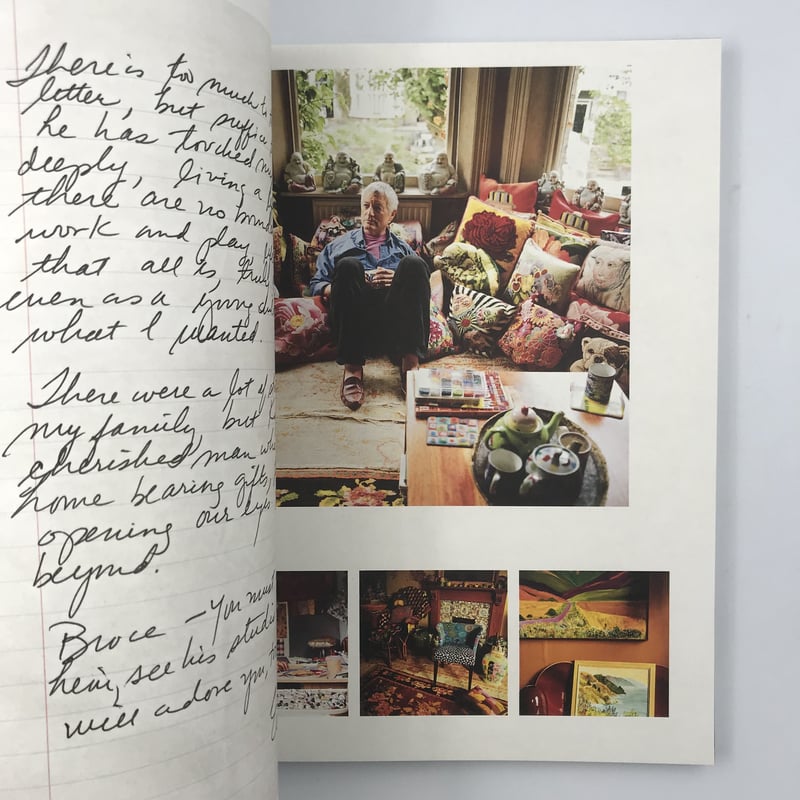 There is too much to
letter, but suffice
he has touched
deeply, living a
there are no
work and play
that all is truly
even as a young
what I wanted.
There were a lot of
my family, but
cherished man who
home bearing gifts,
opening our eyes
beyond.
Bruce – You must
him, see his studio
will adore you,